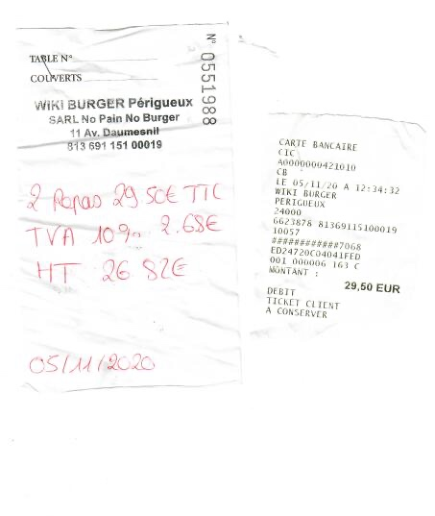 TABLE N°
COUVERTS
N° 0551988
WIKI BURGER Périgueux
SARL No Pain No Burger
11 Av. Daumesnil
813 691 151 00019
2 Repas 29.50€ TTC
TVA 10% 2.68€
HT 26 82€
05/11/2020
CARTE BANCAIRE
CIC
A0000000421010
CB
LE 05/11/20 A 12:34:32
WIKI BURGER
PERIGUEUX
24000
6623878 81369115100019
10057
############7068
ED24720C04041FED
001 000006 163 C
MONTANT :
29,50 EUR
DEBIT
TICKET CLIENT
A CONSERVER